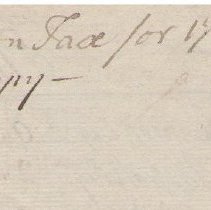 n Tax for 17
py —